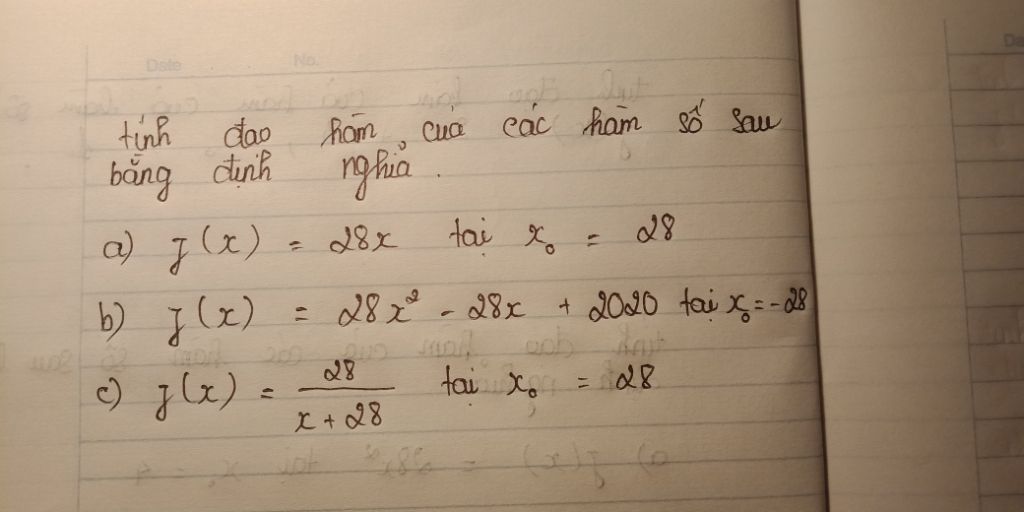 Date No.
tính đao hàm của các hàm số sau
bằng định nghĩa.
a) f(x) = 28x tại x₀ = 28
b) f(x) = 28x² - 28x + 2020 tại x₀ = -28
c) f(x) = 28/(x + 28) tại x₀ = 28